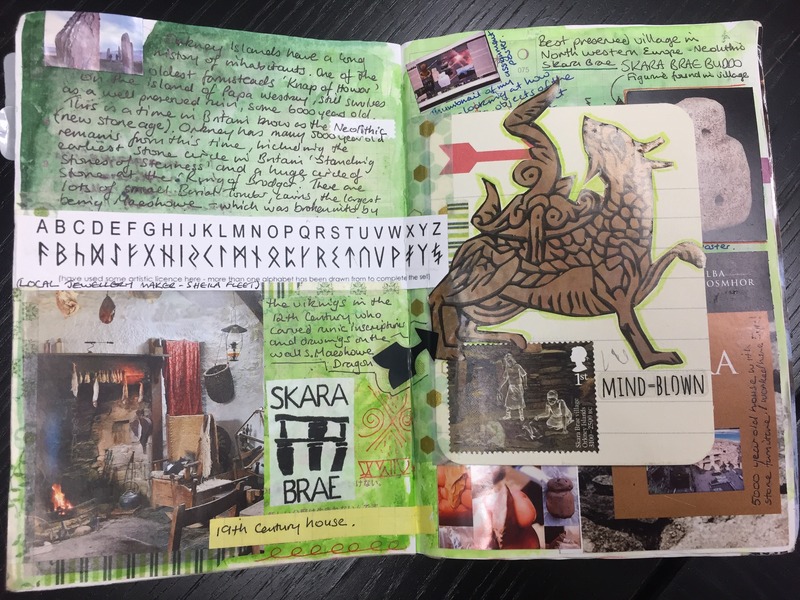 Orkney Islands have a long
history of inhabitants. One of the
oldest farmsteads 'Knap of Howar'
on the Island of Papa Westray, still survives
as a well preserved ruin, some 6000 years old.
This is a time in Britain know as the Neolithic
(new stone age). Orkney has many 5000 year old
remains from this time, including the
earliest stone circle in Britain 'Standing
Stones of Stenness' and a huge circle of
Stone at the 'Ring of Brodgar'. There are
lots of small Burial tombs, cairns, the largest
being Maeshowe - which was broken into by
ABCDEFGHIJKLMNOPQRSTUVWXYZ
[have used some artistic licence here - more than one alphabet has been drawn from to complete the set]
(LOCAL JEWELLERY MAKER - SHEILA FLEET)
the vikings in the
12th Century who
carved runic inscriptions
and drawings on the
walls. Maeshowe
Dragon
SKARA
BRAE
19th Century house.
Thumbnail of my
looking at how
objects
Best preserved village in
North western Europe - Neolithic
Skara Brae
SKARA BRAE BUDDO
Figurine found in village
ALBA
1st
Skara Brae village
Orkney Islands
3100 - 2500 BC
MIND=BLOWN
5000 year old house with
stone furniture /